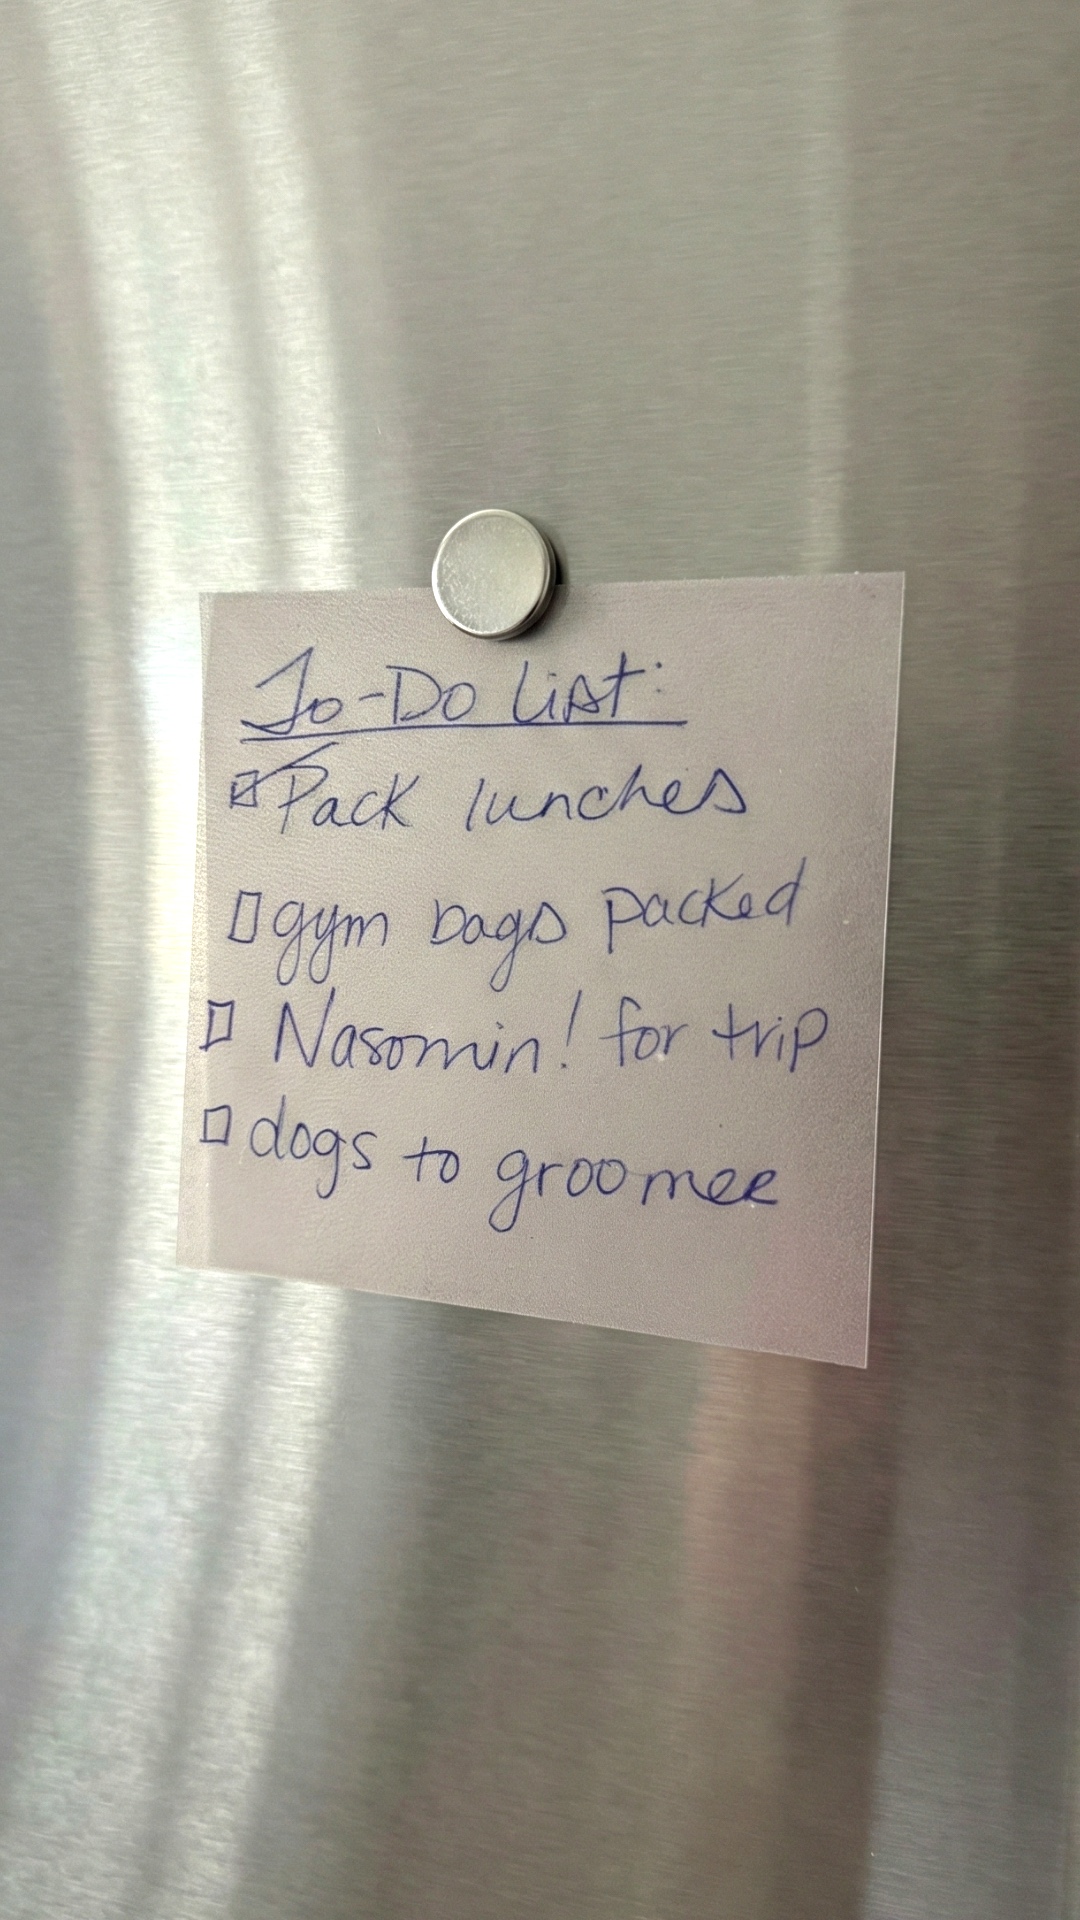 To-Do List:
☑ Pack lunches
☐ gym bags packed
☐ Nasomin! for trip
☐ dogs to groomer